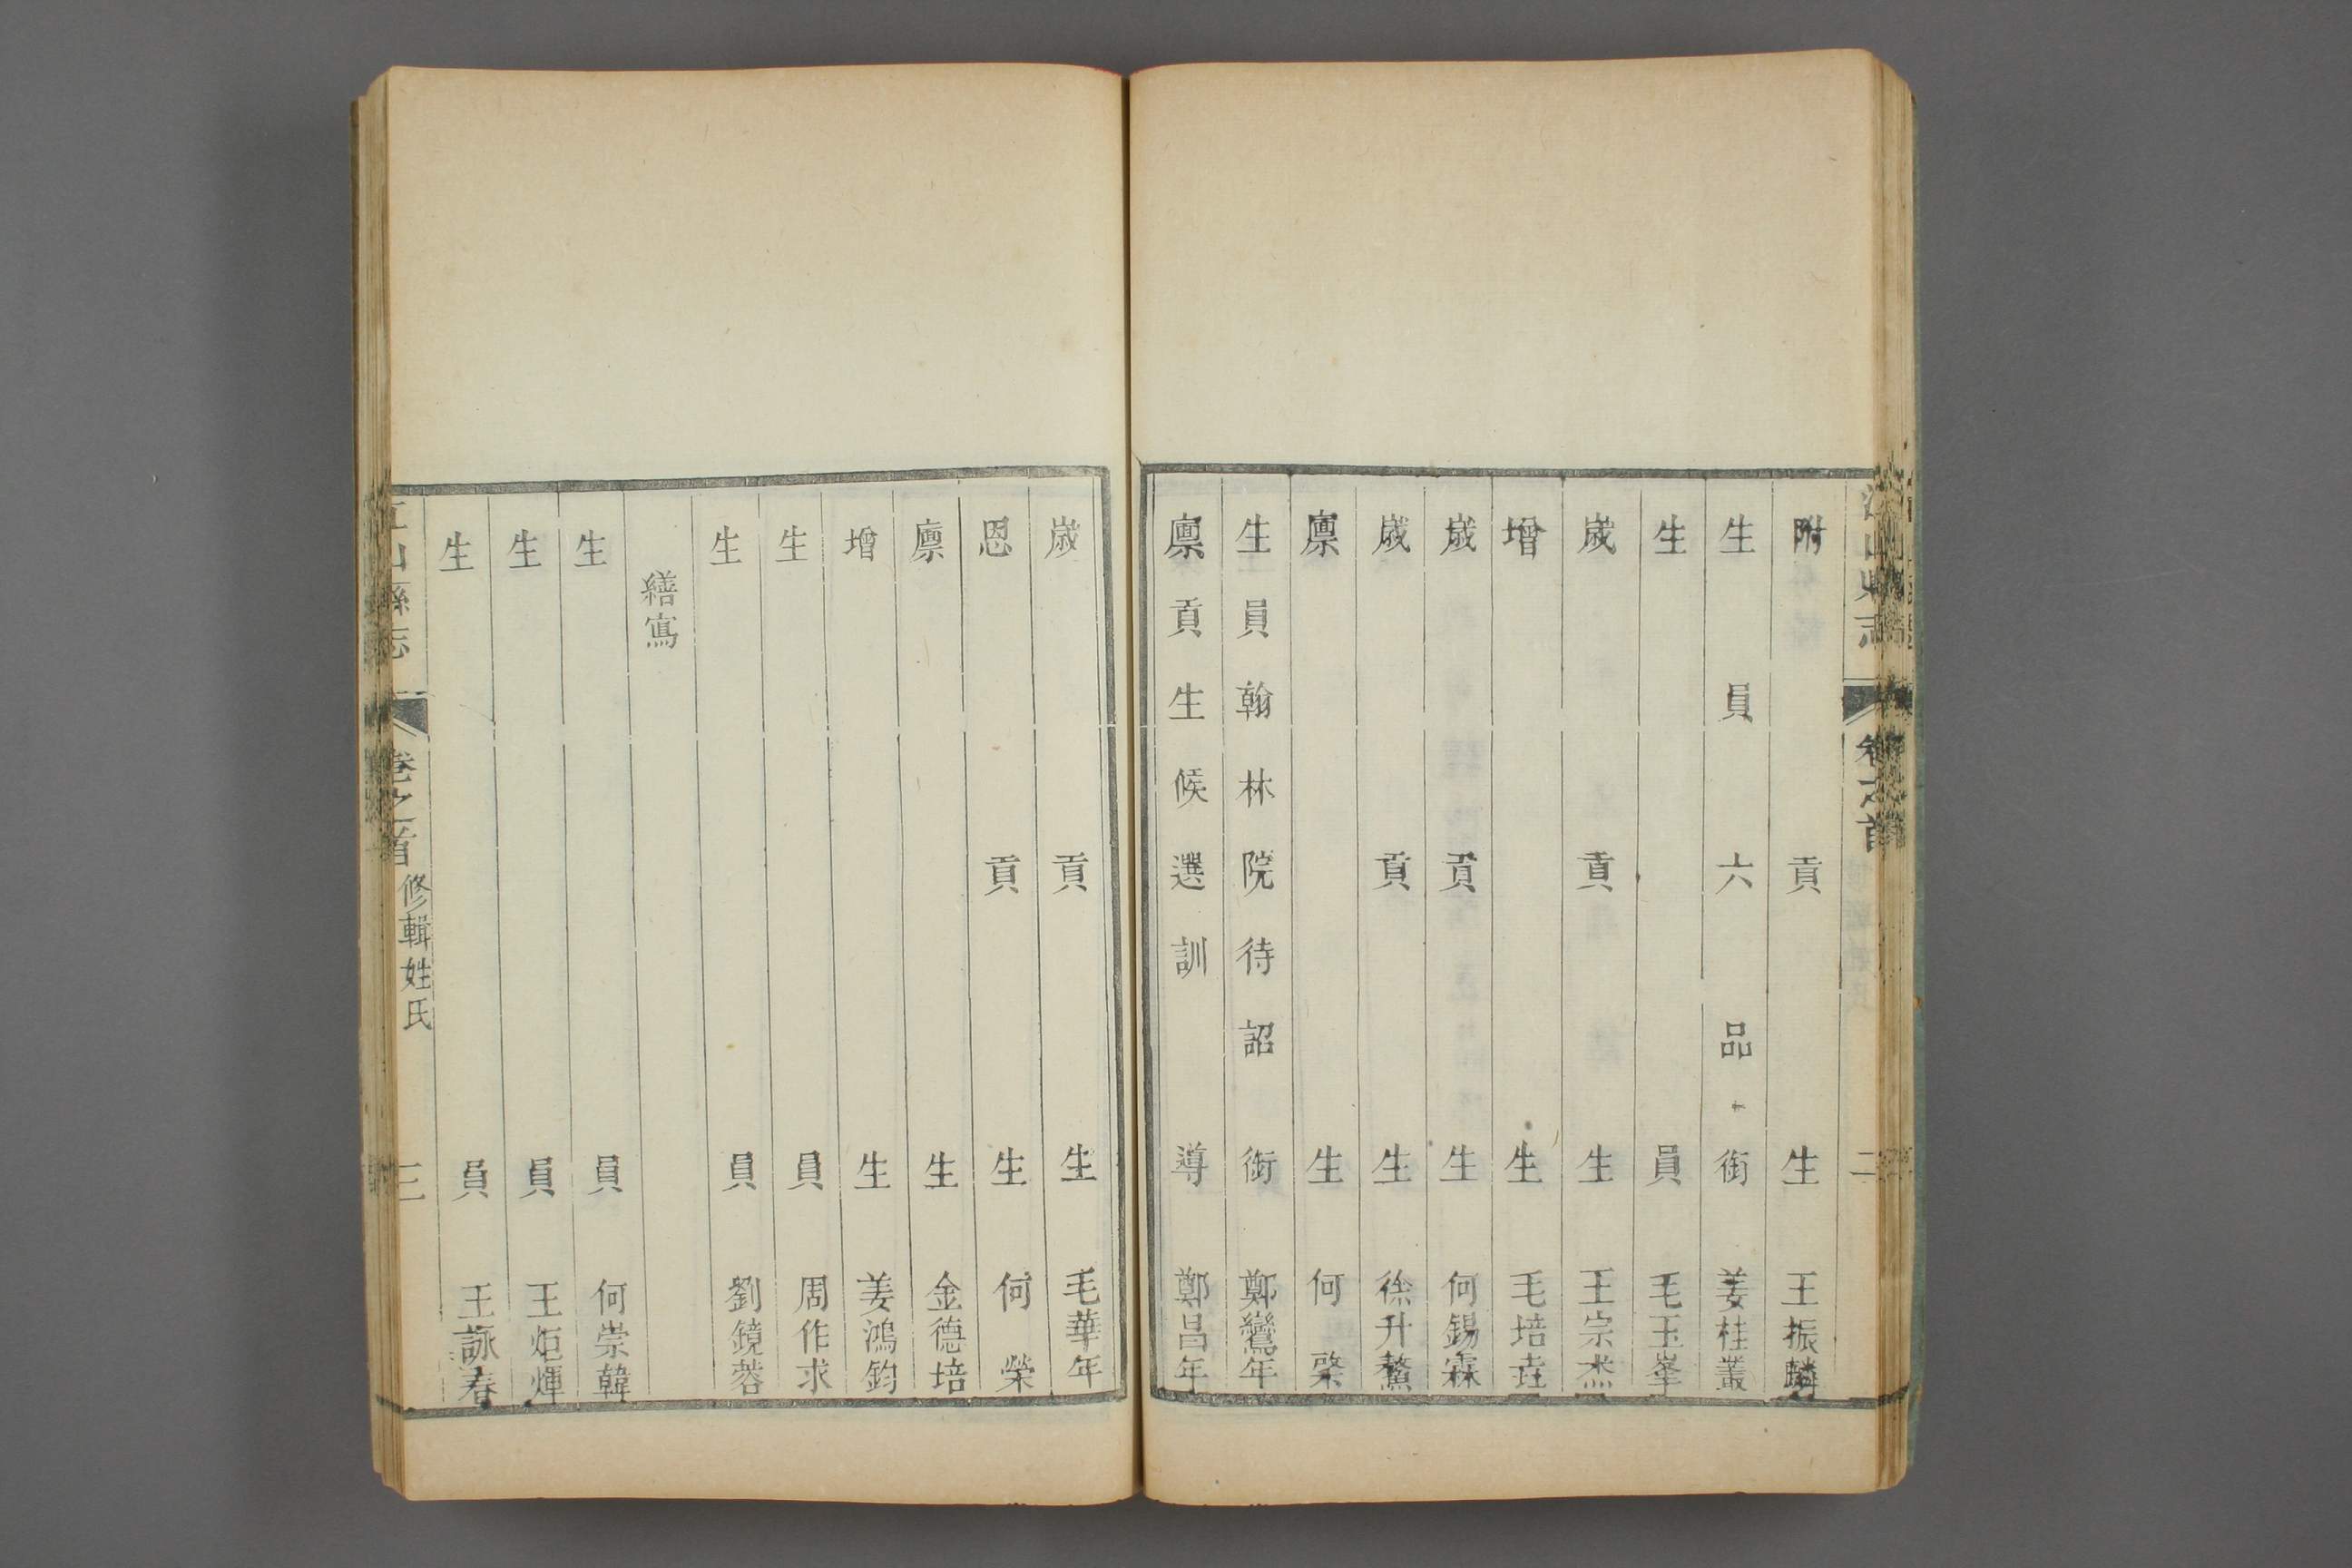 江山縣志
卷之首
二
附貢生王振麟
生員六品銜姜桂叢
生員毛玉峯
歲貢生王宗杰
增生毛培垚
歲貢生何錫霖
歲貢生徐升鰲
廩生何棨
生員翰林院待詔銜鄭鸞年
廩貢生候選訓導鄭昌年
歲貢生毛華年
恩貢生何榮
廩生金德培
增生姜鴻鈞
生員周作求
生員劉鏡蓉
繕寫
生員何崇韓
生員王炬煇
生員王詠春
江山縣志
卷之首
修輯姓氏
三